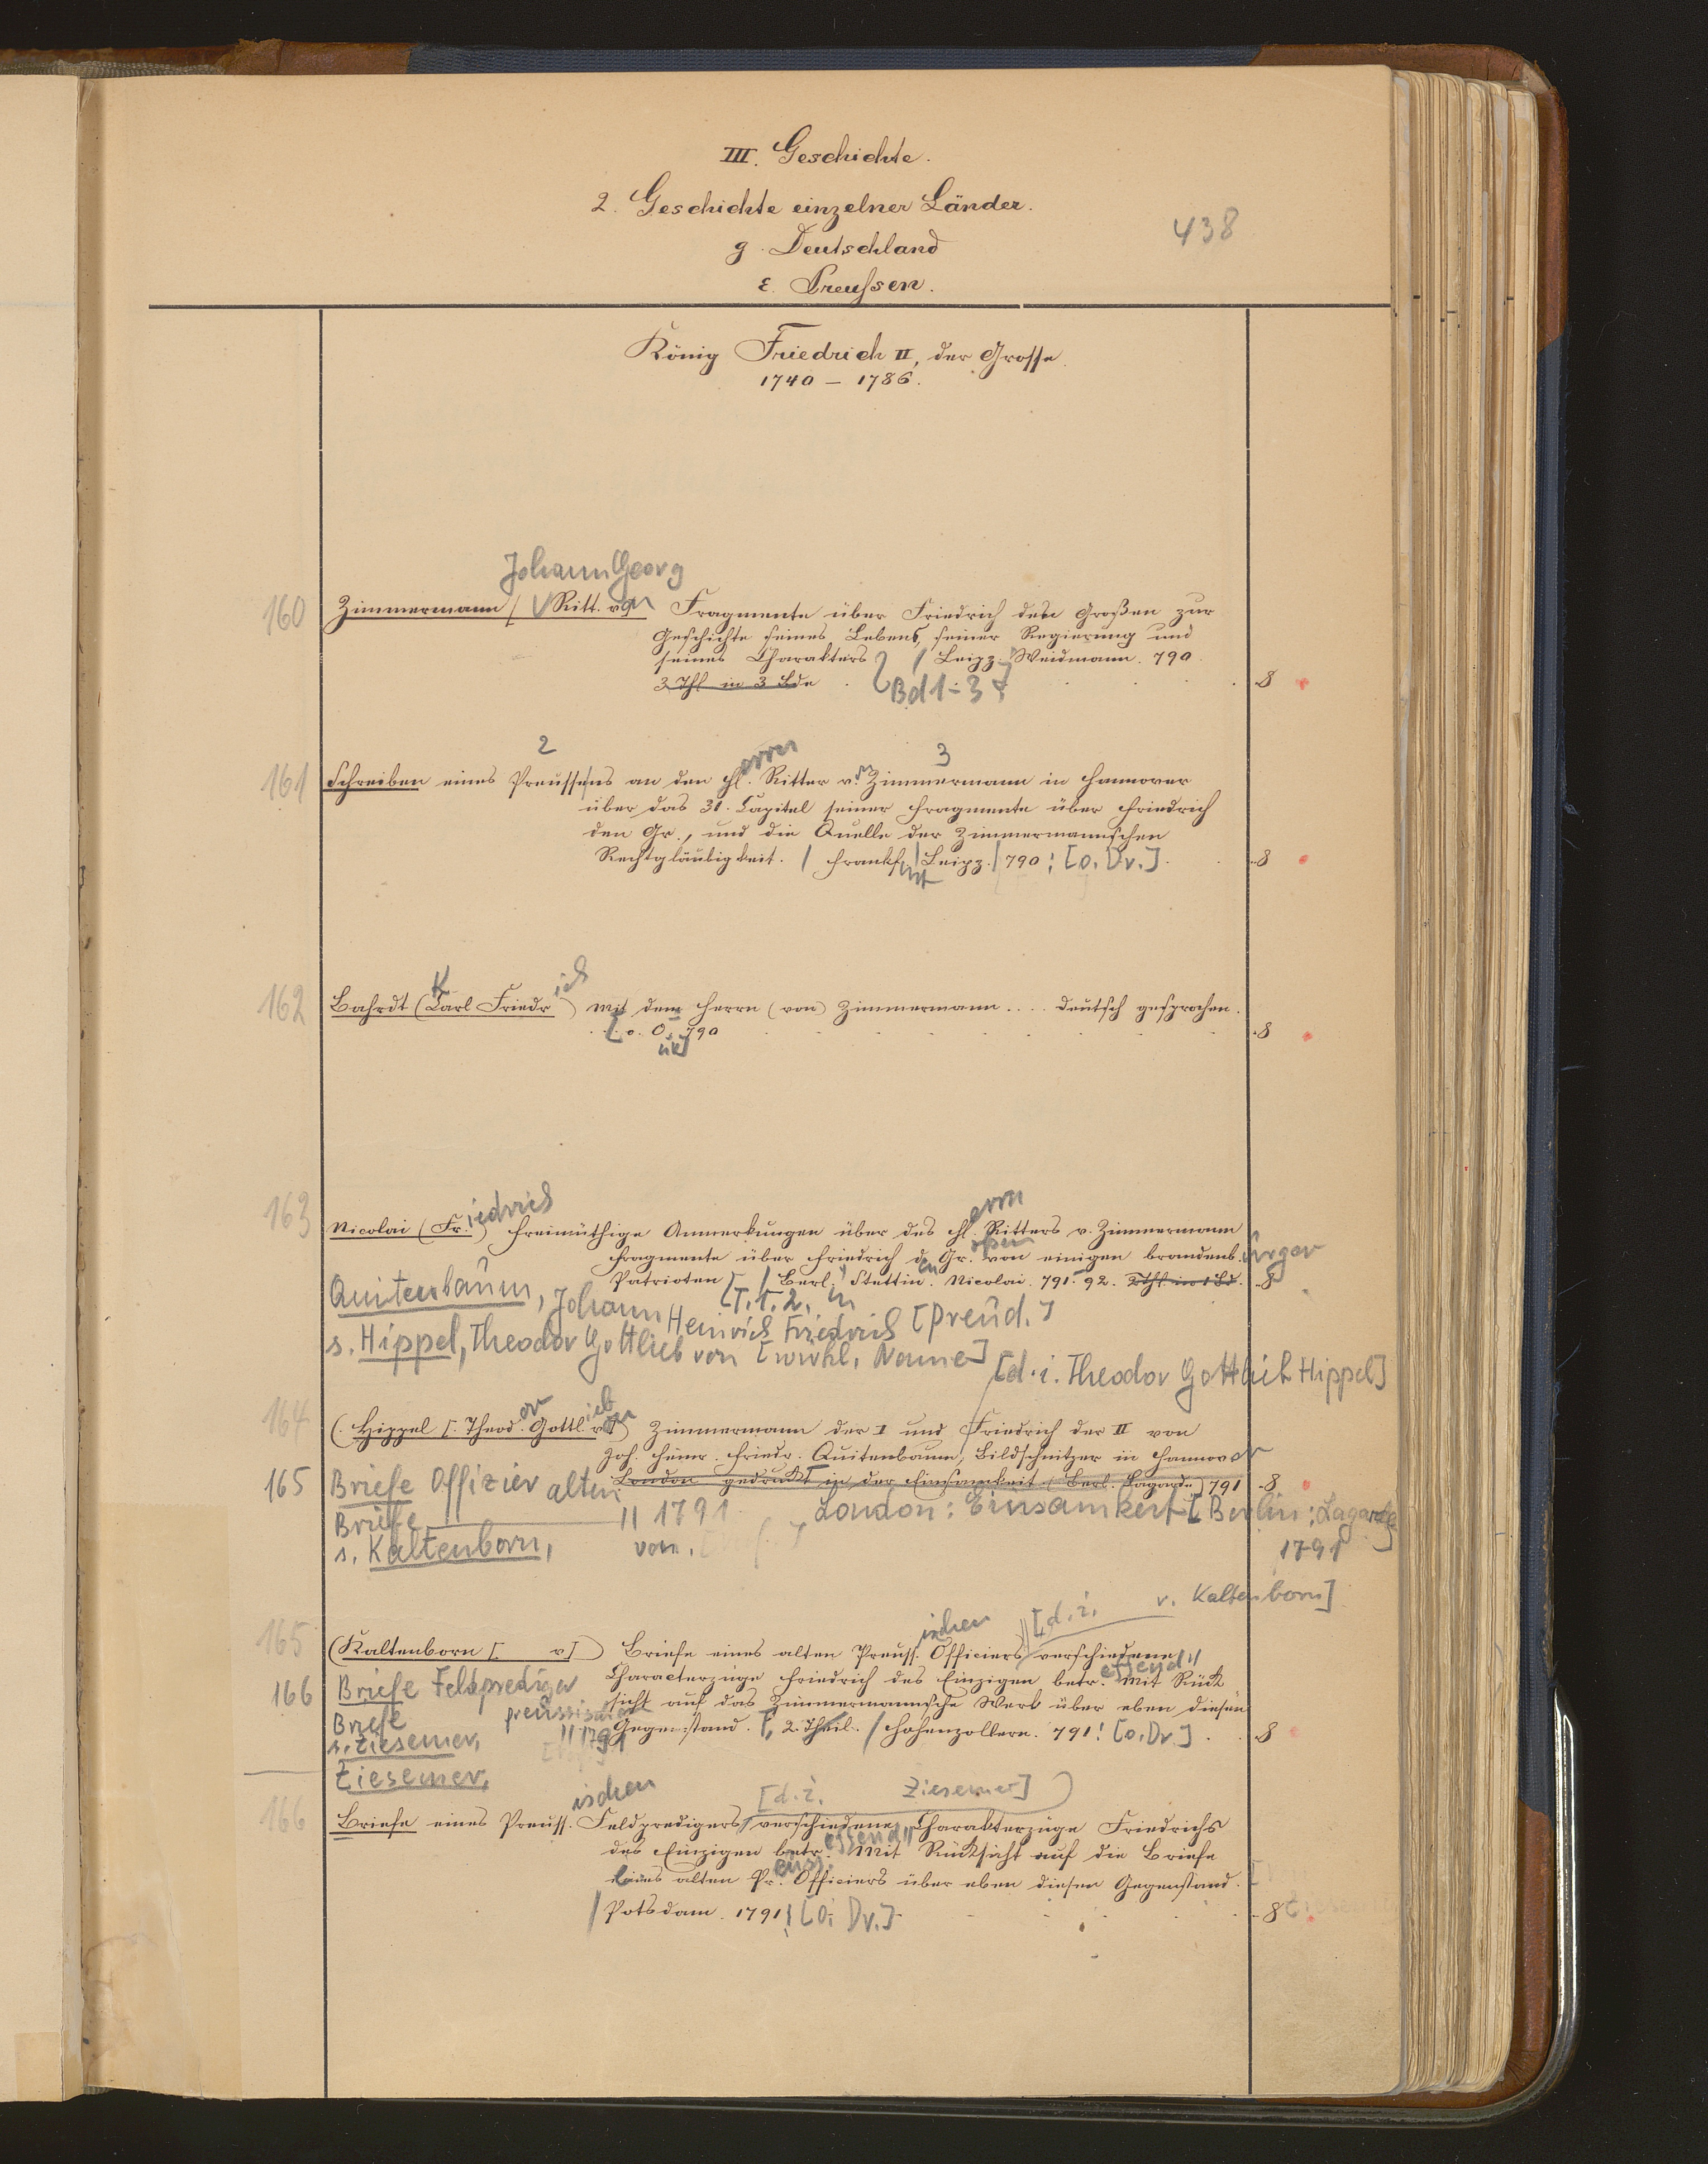 III. Geschichte.
2. Geschichte einzelner Länder.
438
g. Deutschland
ε. Preussen.
König Friedrich II, der Grosse.
1740 – 1786.
Johann Georg
160 Zimmermann ( Ritt. von Fragmente über Friedrich den Großen zur
Geschichte seines Lebens, seiner Regierung und
seines Charakters / Leipz. Weidmann. 790
3 Thl in 3 Bde Bd 1-3 8
2 errn 3
161 Schreiben eines Preussens an den H. Ritter v. Zimmermann in Hannover
über das 31. Capitel seiner Fragmente über Friedrich
den Gr., und die Quelle der Zimmermannschen
Rechtgläubigkeit. / Frankfurt / Leipz. / 790 : [o. Dr.] 8
K ich
162 Bahrdt (Carl Friedr ) mit dem Herrn (von) Zimmermann .... deutsch gesprochen.
[o. O. 790 8
uk]
iedrich errn
163 Nicolai (Fr. ) Freimüthige Anmerkungen über des H. Ritters v. Zimmermann
Fragmente über Friedrich d. Gr. von einigen brandenb. urger
Patrioten / Berl. Stettin. Nicolai. 791. 92. 2 Thl in 1 Bd. 8
[T. 1. 2.
Quitenbaum, Johann Heinrich Friedrich [Pseud.]
s. Hippel, Theodor Gottlieb von [wirkl. Name]
[d. i. Theodor Gottlieb Hippel]
or ieb
164 (Hippel [. Theod. Gottl. v.]) Zimmermann der I und Friedrich der II von
Joh. Heinr. Friedr. Quitenbaum, Bildschnitzer in Hannover
London gedruckt in der Einsamkeit (Berl. Lagarde) 791 8
165 Briefe Offizier alten
London: Einsamkeit [Berlin: Lagarde]
Briefe 11 1791
1791
s. Kaltenborn, von.
ischen [d. i. v. Kaltenborn]
165 (Kaltenborn [. v]) Briefe eines alten Preuss. Officiers verschiedene
Characterzüge Friedrich des Einzigen betr. effend Mit Rück
166 Briefe Feldprediger
sicht auf das Zimmermannsche Werk über eben diesen
preussischen
Briefe 11 1791
Gegenstand. 2. Theil. / Hohenzollern. 791 : [o. Dr.] 8
s. Ziesemer,
Ziesemer,
ischen [d. i. Ziesemer]
166 Briefe eines Preuss. Feldpredigers, verschiedene Charakterzüge Friedrichs
des Einzigen betr. effend Mit Rücksicht auf die Briefe
eines alten Pr. euss. Officiers über eben diesen Gegenstand.
/ Potsdam. 1791 : [o. Dr.] 8